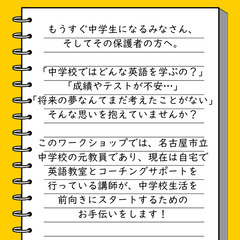 もうすぐ中学生になるみなさん、
そしてその保護者の方へ。
「中学校ではどんな英語を学ぶの？」
「成績やテストが不安…」
「将来の夢なんてまだ考えたことがない」
そんな思いを抱えていませんか？
このワークショップでは、名古屋市立
中学校の元教員であり、現在は自宅で
英語教室とコーチングサポートを
行っている講師が、中学校生活を
前向きにスタートするための
お手伝いをします！